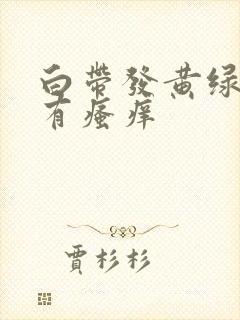 白带發黄绿
有瘙痒
賈杉杉